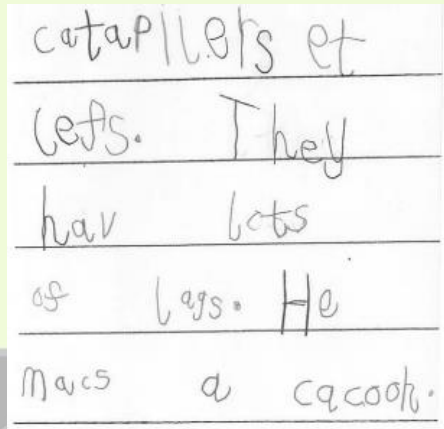 catapilers et
lefs. They
hav lots
of lags. He
macs a cacoon.